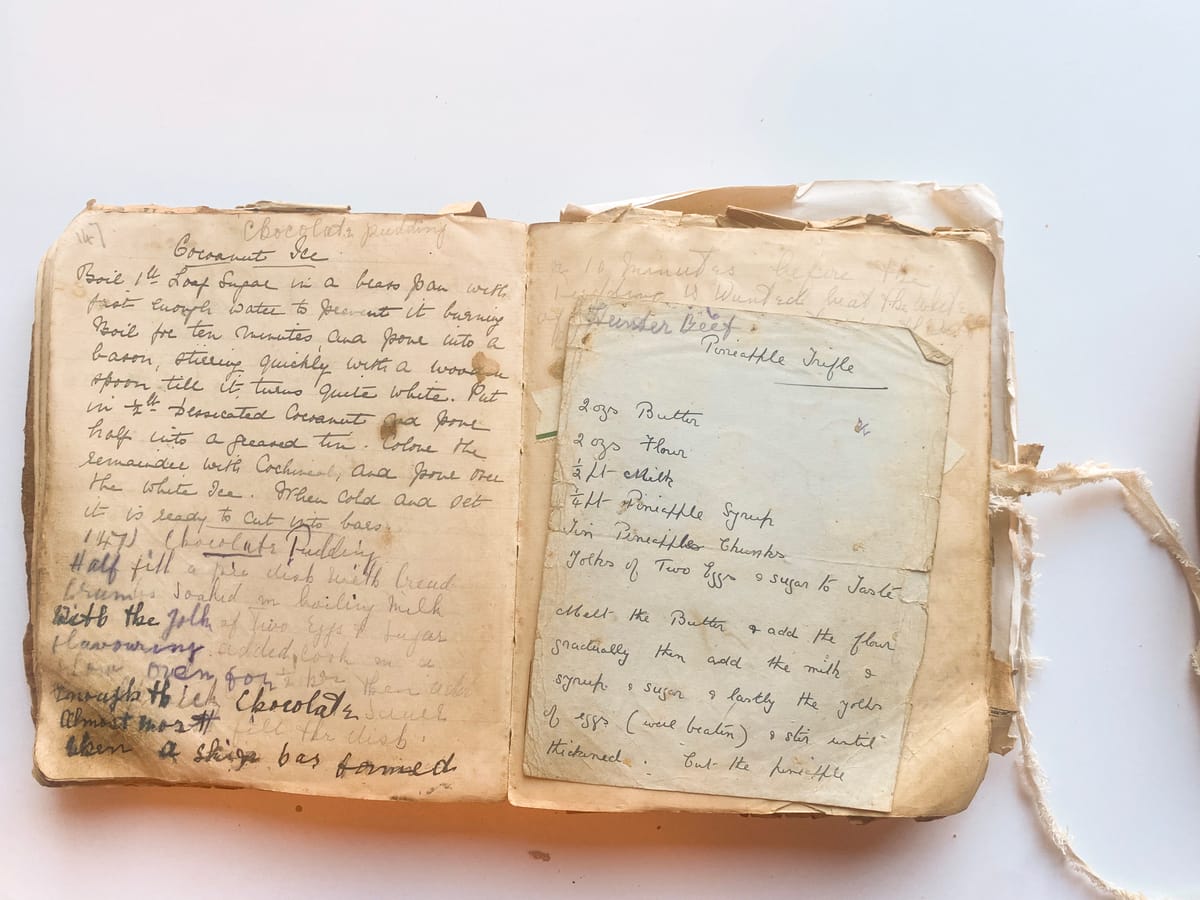 147
Chocolate pudding
Cocoanut Ice
Boil 1lb Loaf Sugar in a brass pan with
just enough water to prevent it burning
Boil for ten minutes and pour into a
bason, stirring quickly with a wooden
spoon till it turns quite white. Put
in ½lb Dessicated Cocoanut and pour
half into a greased tin. Colour the
remainder with Cochineal, and pour over
the white Ice. When cold and set
it is ready to cut into bars.
147) Chocolate Pudding
Half fill a pie dish with bread
Crumbs soaked in boiling Milk
With the yolk of Two Eggs & Sugar
flavouring added, cook in a
slow oven for then
Enough thick Chocolate
Almost most fill the dish.
When a skin has formed
a 10 minutes before the
pudding is wanted beat the white
Hunter Beef
Pineapple Trifle
2 ozs Butter
2 ozs Flour
½ pt Milk
¼ pt Pineapple Syrup
Tin Pineapple Chunks
Yolks of Two Eggs & sugar to Taste
Melt the Butter & add the flour
gradually then add the milk &
syrup & sugar & lastly the yolks
of eggs (well beaten) & stir until
thickened. Cut the pineapple